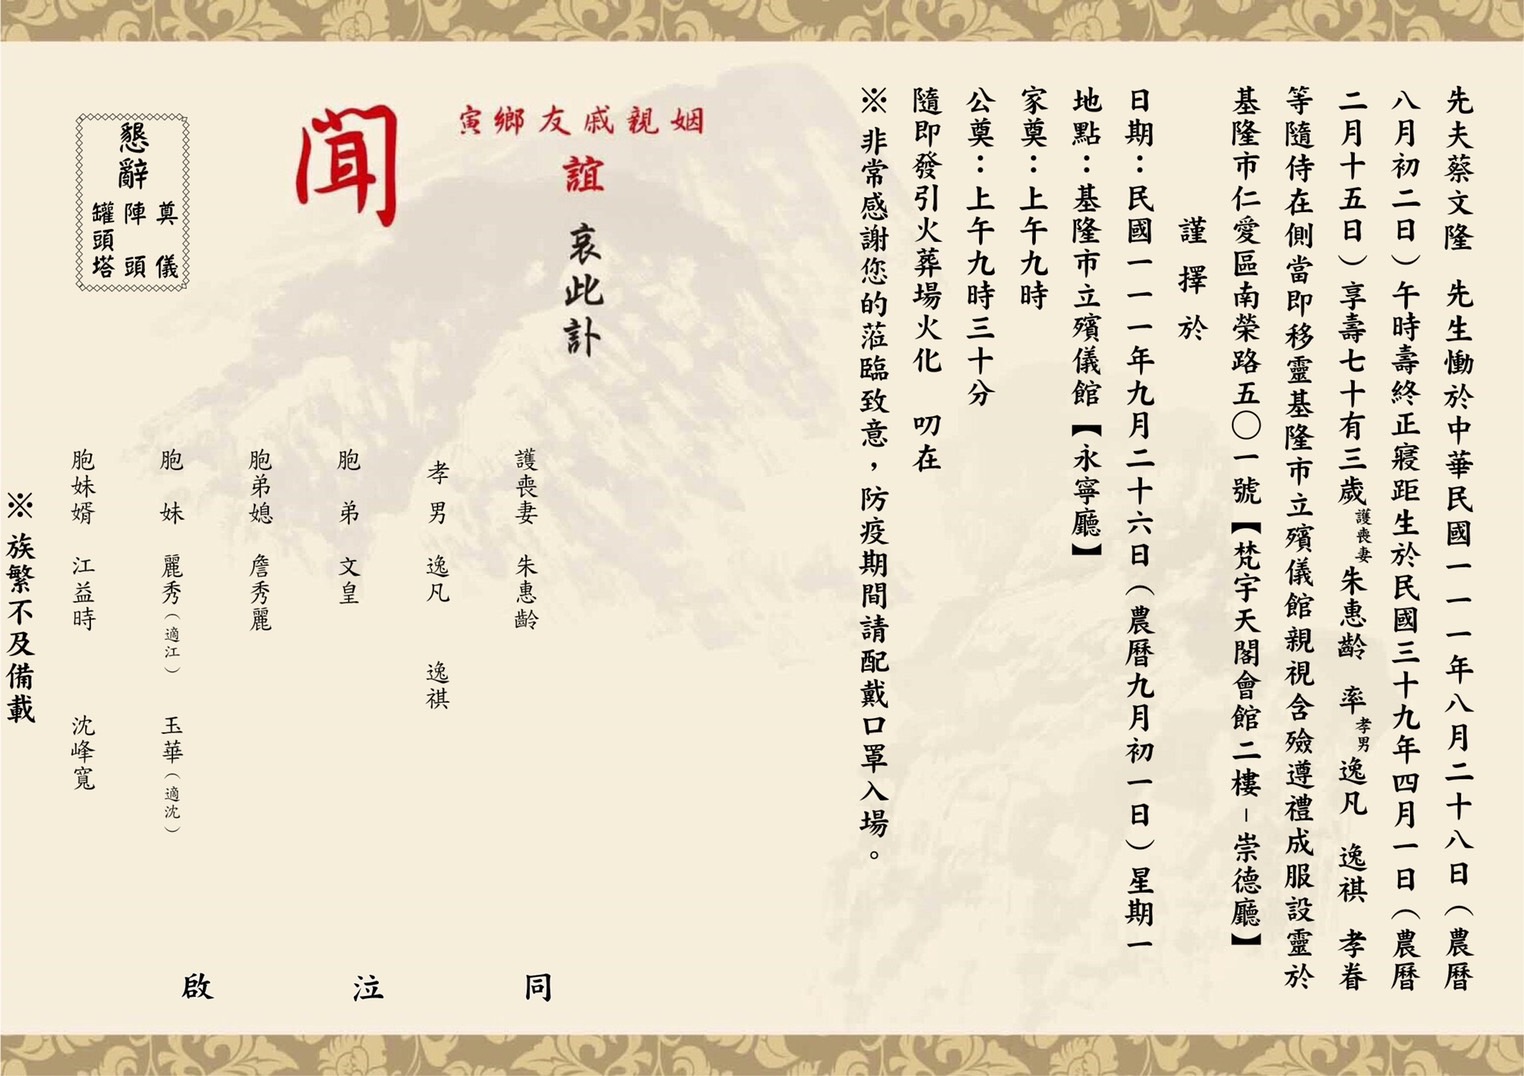 先夫蔡文隆 先生慟於中華民國一一一年八月二十八日（農曆
八月初二日）午時壽終正寢距生於民國三十九年四月一日（農曆
二月十五日）享壽七十有三歲護喪妻朱惠齡 率孝男逸凡 逸祺 孝眷
等隨侍在側當即移靈基隆市立殯儀館親視含殮遵禮成服設靈於
基隆市仁愛區南榮路五〇一號【梵宇天閣會館二樓-崇德廳】
謹擇於
日期：民國一一一年九月二十六日（農曆九月初一日）星期一
地點：基隆市立殯儀館【永寧廳】
家奠：上午九時
公奠：上午九時三十分
隨即發引火葬場火化 叨在
※非常感謝您的蒞臨致意，防疫期間請配戴口罩入場。
寅鄉友戚親姻
誼 哀此訃
聞
懇辭
奠儀
陣頭
罐頭塔
護喪妻 朱惠齡
孝男 逸凡 逸祺
胞弟 文皇
胞弟媳 詹秀麗
胞妹 麗秀（適江） 玉華（適沈）
胞妹婿 江益時 沈峰寬
同泣啟
※族繁不及備載